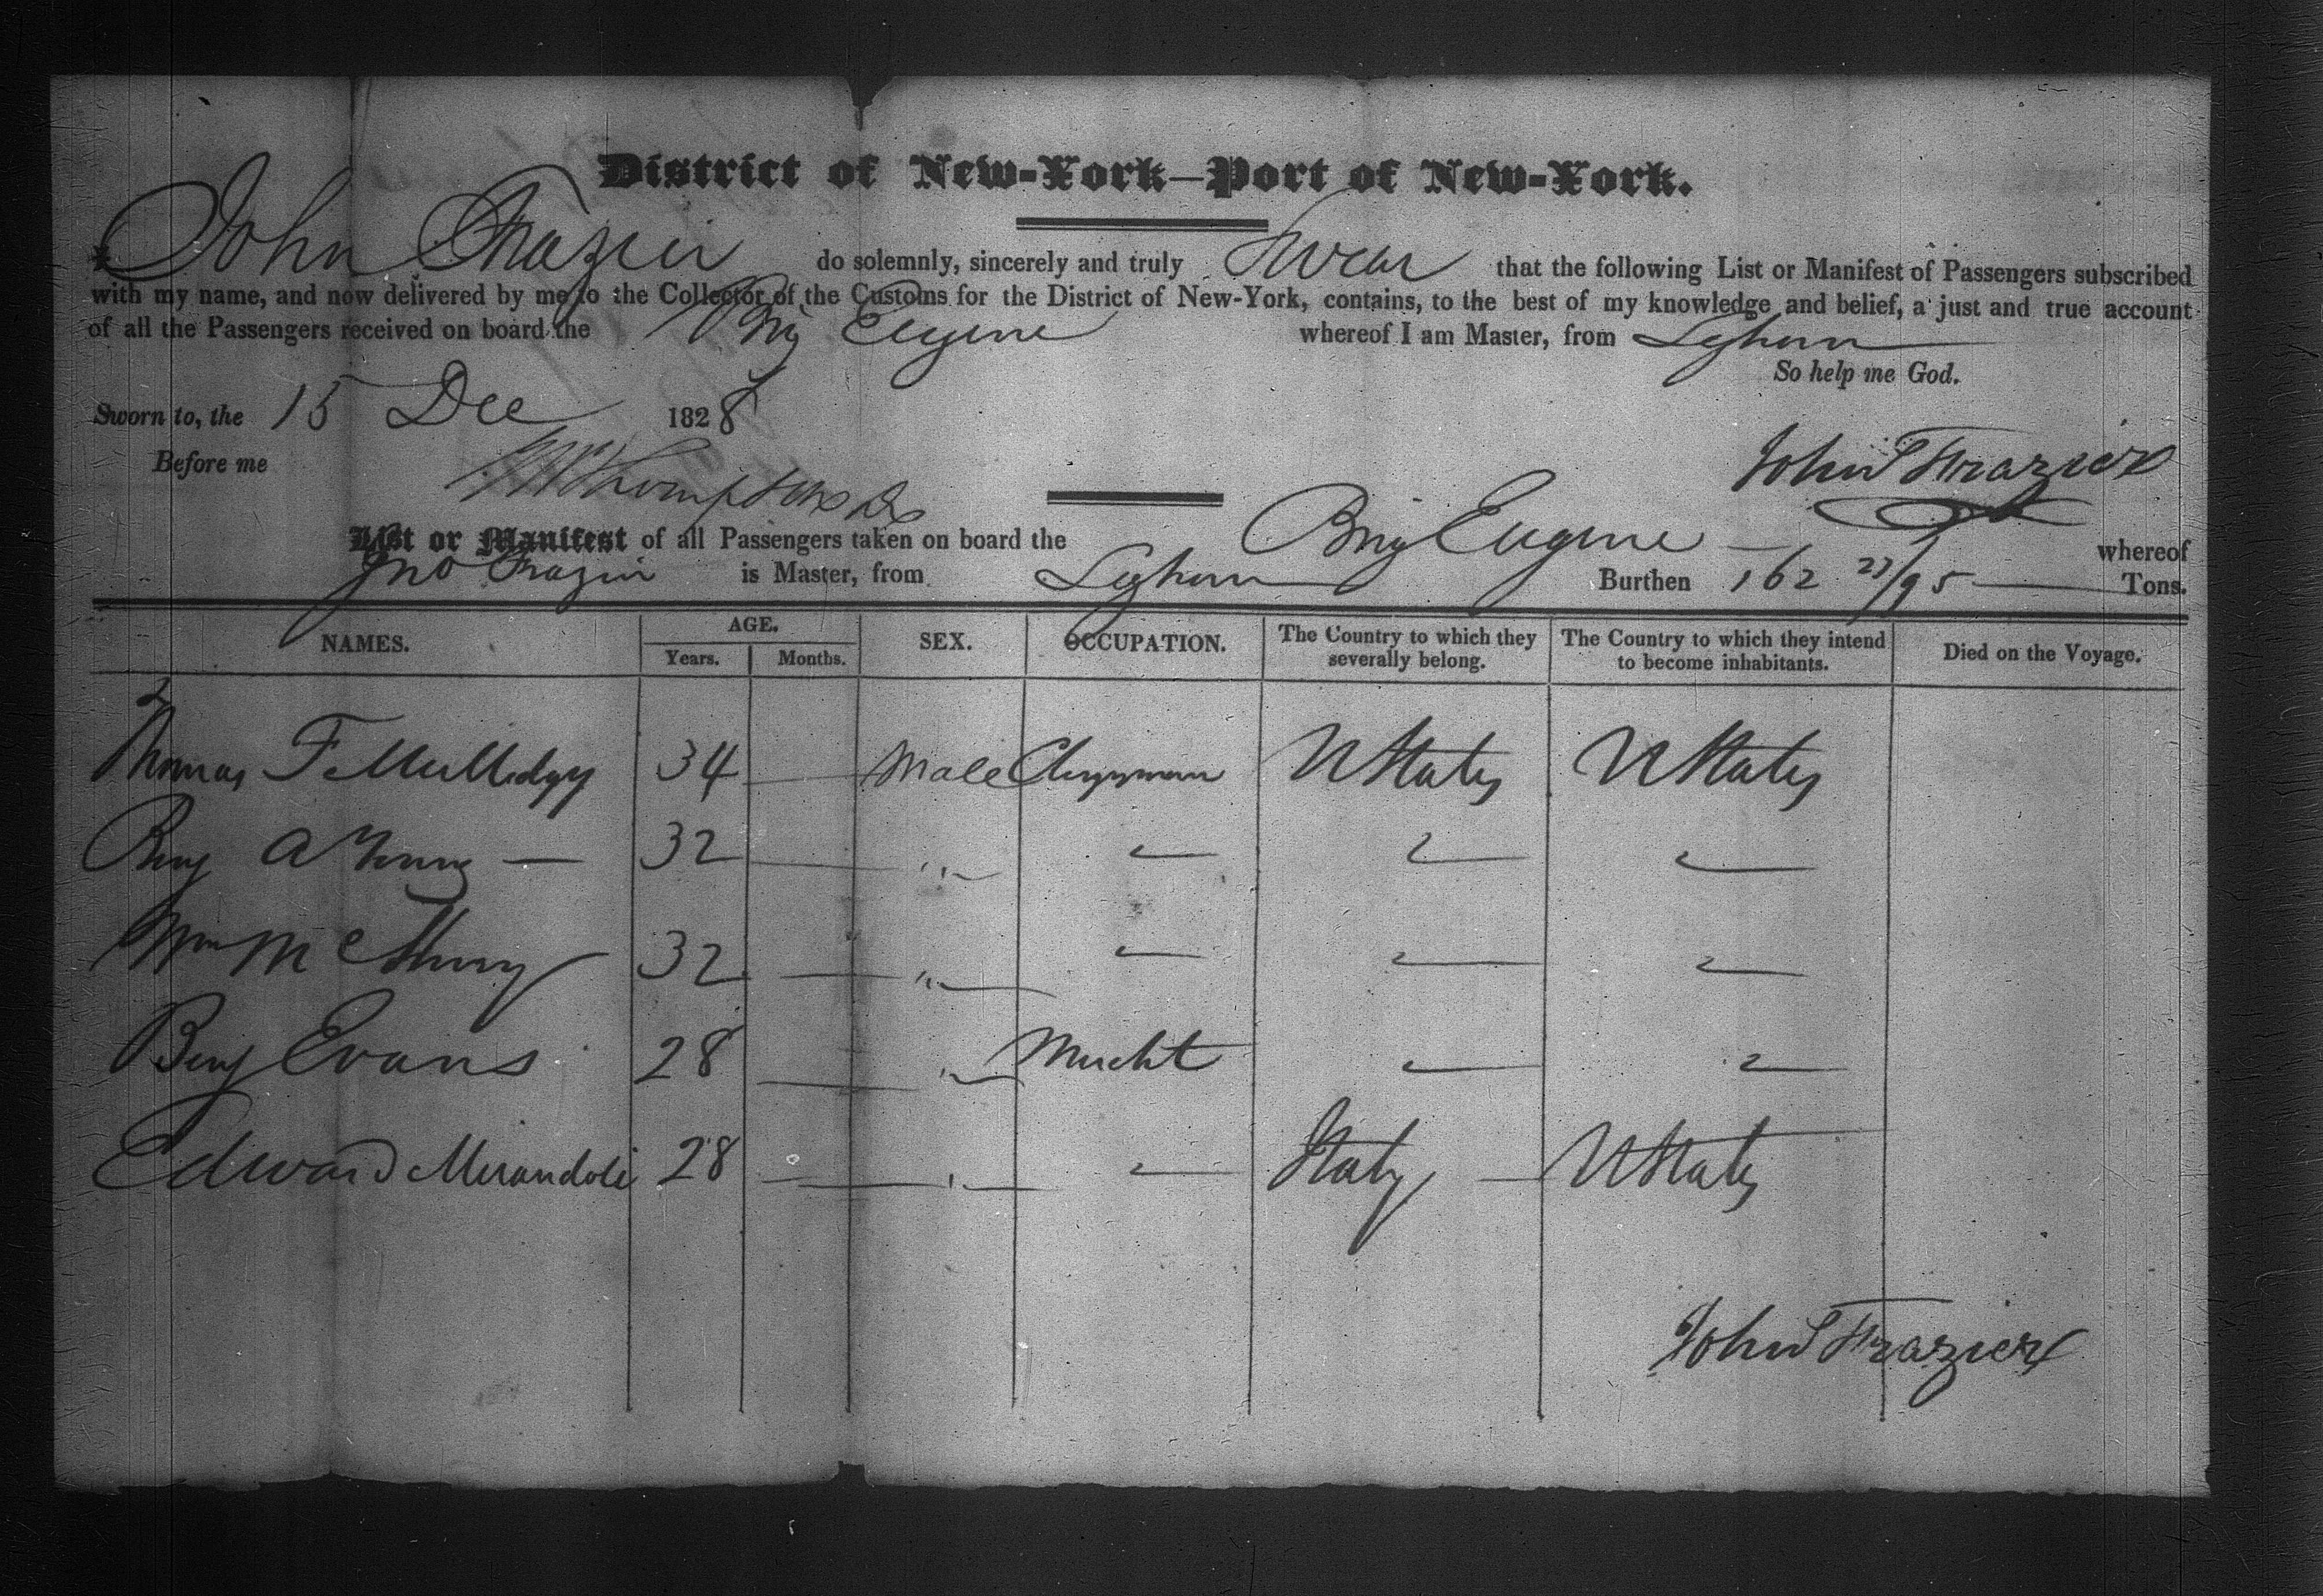 District of New-York—Port of New-York.
I John Frazier do solemnly, sincerely and truly Swear that the following List or Manifest of Passengers subscribed
with my name, and now delivered by me to the Collector of the Customs for the District of New-York, contains, to the best of my knowledge and belief, a just and true account
of all the Passengers received on board the Brig Eugene whereof I am Master, from Leghorn
So help me God.
Sworn to, the 15 Dec 1828
Before me
John Frazier
List or Manifest of all Passengers taken on board the Brig Eugene — whereof
Jno Frazier is Master, from Leghorn Burthen 162 Tons.
NAMES. AGE. Years. Months. SEX. OCCUPATION. The Country to which they severally belong. The Country to which they intend to become inhabitants. Died on the Voyage.
Thomas F 34 Male Clergyman UStates UStates
Benj A Young — 32 "
Wm Mc 32 "
Benj Evans 28 " Mercht
Edward Mirandoli 28 " Italy — UStates
John Frazier